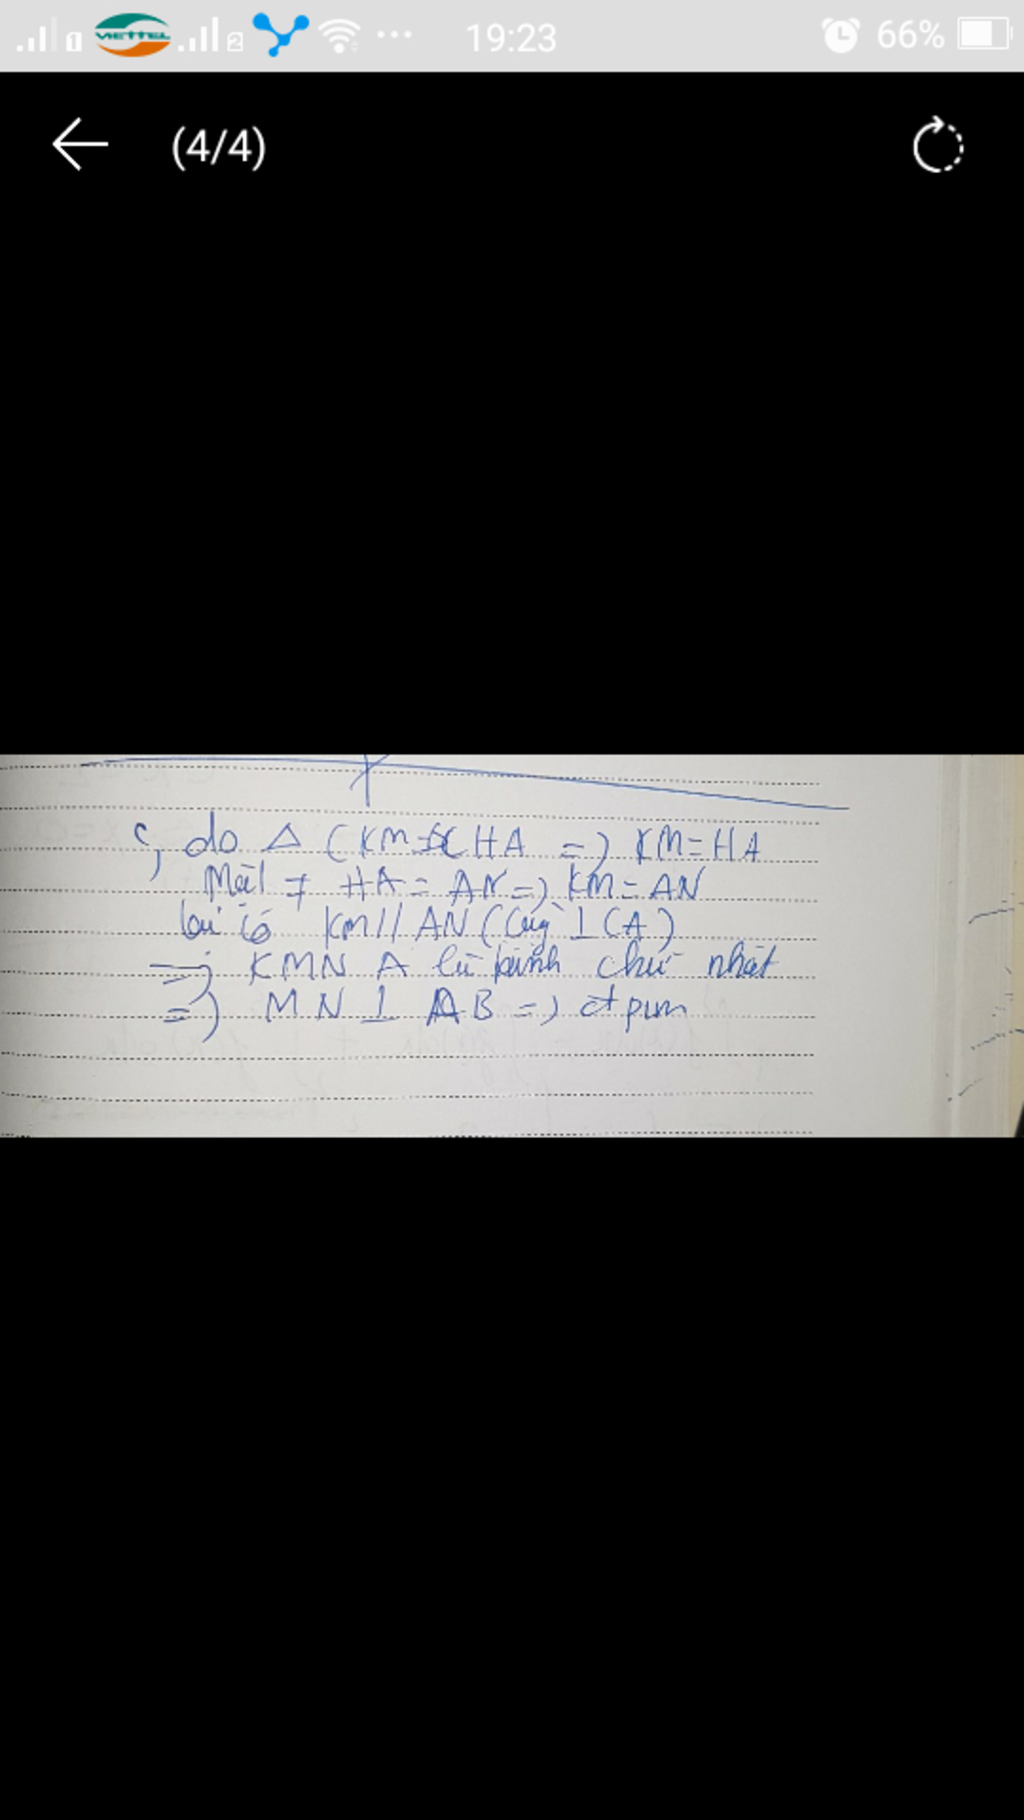 1 VIETTEL 2 ... 19:23 66%
(4/4)
c, do Δ CKM = CHA => KM = HA
Mặt ≠ HA = AN => KM = AN
lại có KM // AN (cùng ⊥ CA)
=> KMNA là hình chữ nhật
=> MN ⊥ AB => đpcm